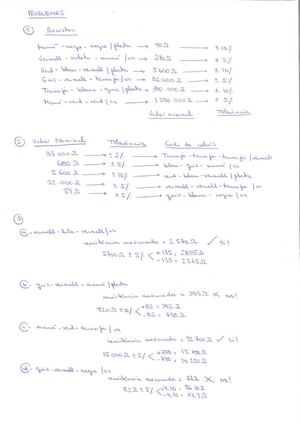 PROBLEMES:
① Resistor
Marró - negre - negre / plata → 10 Ω → ± 10 /.
Vermell - violeta - marró / or → 270 Ω → ± 5 /.
Verd - blau - vermell / plata → 5.600 Ω → ± 10 /.
Gris - vermell - taronja / or → 82000 Ω → ± 5 /.
Taronja - blanc - / plata → → ± 10 /.
Marró - verd - verd / or → → ± 5 /.
Valor nominal Tolerància
② Valor Nominal Tolerància Codi de colors
33.000 Ω → ± 2 /. → Taronja - taronja - taronja / vermell
680 Ω → ± 5 /. → blau - gris - marró / or
5.600 Ω → ± 10 /. → verd - blau - vermell / plata
→ ± 5 /. → vermell - vermell - taronja / or
→ ± 5 /. → gris - blanc - negre / or
③
ⓐ - vermell - - vermell / or
resistència mesurada = 2.570 Ω ✓ Sí!
± 5 /. + 135 = 2835 Ω
- 135 = 2565 Ω
ⓑ - gris - vermell - marró / plata
resistència mesurada = Ω X No!
820 Ω ± 10 /. + 82 = 902 Ω
- 82 = 738 Ω
ⓒ - marró - verd - taronja / or
resistència mesurada = 15.700 Ω ✓ Sí!
15.000 Ω ± 5 /. + 750 = 15.750 Ω
- 750 = 14.250 Ω
ⓓ - gris - vermell - negre / or
resistència mesurada = X No!
82 Ω ± 5 /. + 4,10 = 86,10 Ω
- 4,10 = 77,9 Ω